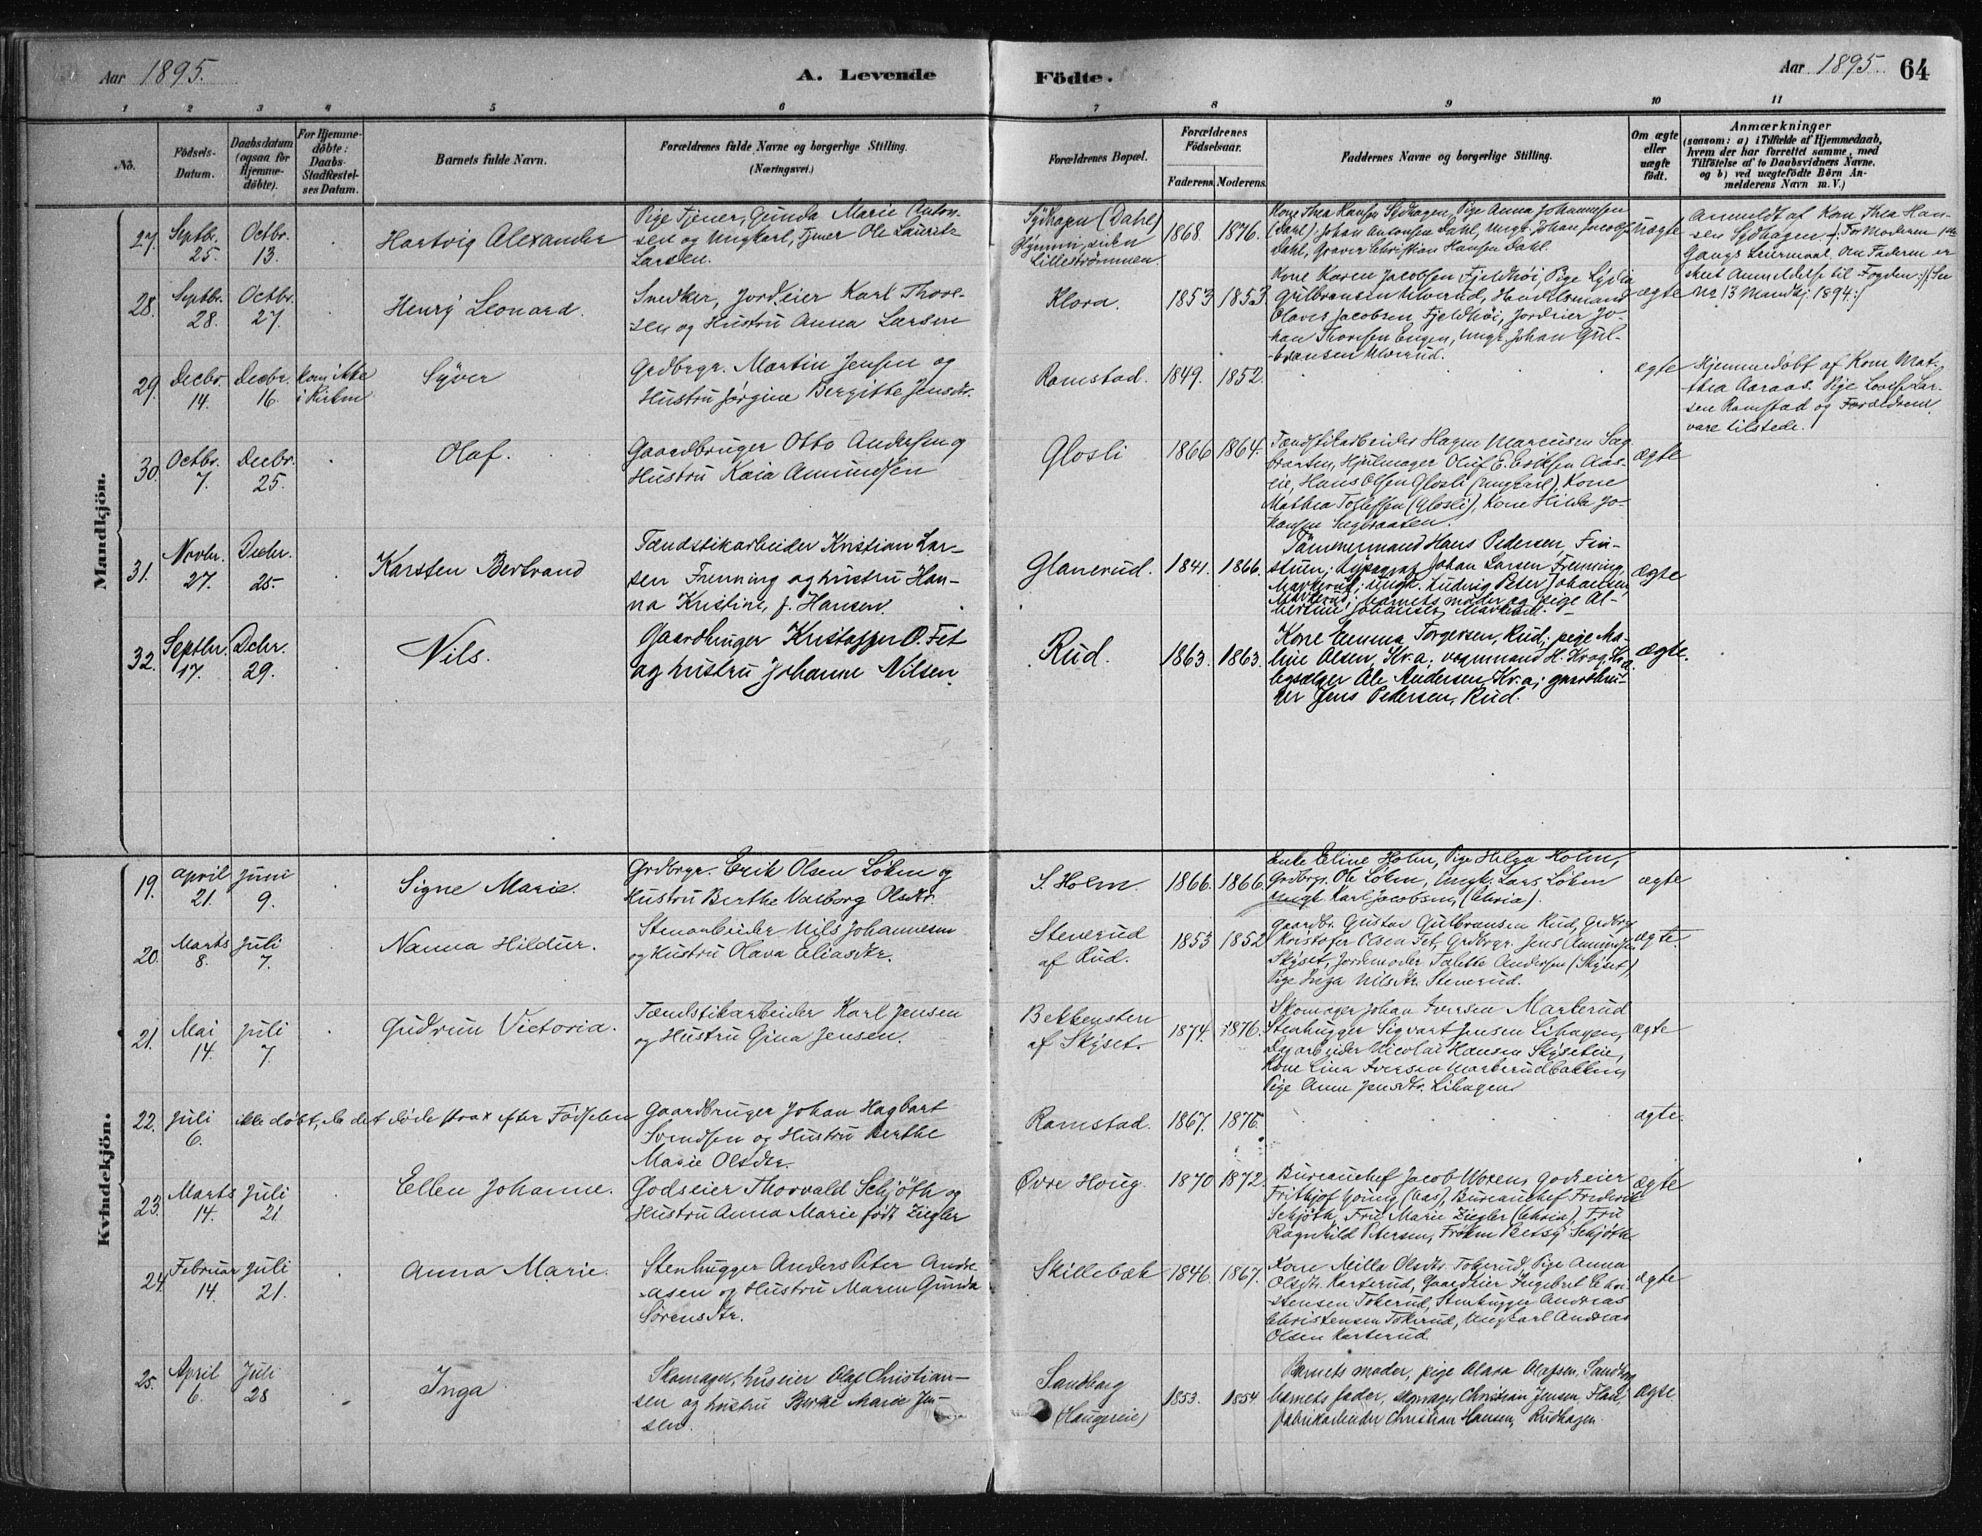 Aar 1895. A. Levende Födte. Aar 1895. 64
1 2 3 4 5 6 7 8 9 10 11
No.
Födsels-Datum.
Daabsdatum (ogsaa for Hjemme-döbte).
For Hjemme-döbte: Daabs-Stadfæstel-ses Datum.
Barnets fulde Navn.
Forældrenes fulde Navne og borgerlige Stilling.
(Næringsvei.)
Forældrenes Bopæl.
Forældrenes Födselsaar.
Faderens. Moderens.
Faddernes Navne og borgerlige Stilling.
Om ægte eller uægte födt.
Anmærkninger
(saasom: a) i Tilfælde af Hjemmedaab,
hvem der har forrettet samme, med
Tilföielse af to Daabsvidners Navne.
og b) ved uægtefödte Börn An-
melderens Navn m. V.)
Mandkjön.
27. Septbr. 25 Octbr. 13.
Hartvig Alexander
Pige Tjener, Gunda Marie Anton-
sen og Ungkarl, Tjener Ole Lauritz
Larsen.
Sydhagen (Dahl)
Lillestrømmen.
1868. 1876.
Kone Thea Hansen Sydhagen, Pige Anna Johannesen
(Dahl), Johan Antonsen Dahl, Ungk. Johan Jacobsen
Dahl, Graver Christian Hansen Dahl.
Uægte
Anmeldt af Kone Thea Han-
sen Sydhagen
Gangs Leiermaal. Om Faderen er
skeet Anmeldelse til Fogden
No 13 Mandkj. 1894
28. Septbr. 28. Octbr. 27.
Henry Leonard.
Snedker, Jordeier Karl Thore-
sen og Hustru Anna Larsen
Klova.
1853 1853
Kone Karen Jacobsen Fjeldhöi, Pige Lydia
Gulbransen Ulverud, Handelsmand
Olaves Jacobsen Fjeldhöi, Jordeier Jo-
han Thoresen Engen, Ungk. Johan Gul-
bransen Ulverud.
ægte
29. Decbr. 14. Decbr. 16. kom ikke i Kirken
Syver
Grdbrgr. Martin Jensen og
Hustru Jørgine Bergitte Jensdtr.
Ramstad.
1849. 1852.
ægte
Hjemmedöbt af Kone Mat-
thea Aaraas. Pige Lovise Lar-
sen Ramstad og Forældrene
vare tilstede.
30. Octbr. 7. Decbr. 25.
Olaf.
Gaardbruger Otto Andersen og
Hustru Kaia Amundsen
Glosli
1866 1864.
Tændstikarbeider Hagen Marcusen Sag-
braaten, Hjulmager Oluf E. Eriksen Aas-
eie, Hans Olsen Glosli (Ungkarl), Kone
Mathea Tollefsen (Glosli), Kone Hilda Jo-
hansen Sagbraaten.
ægte
31. Novbr. 27. Decbr. 25.
Karsten Bertrand
Tændstikarbeider Kristian Lar-
sen Frenning og hustru Han-
na Kristine, f. Hansen.
Glanerud.
1841. 1866.
Tömmermand Hans Pedersen, Fin-
stuen; Johan Larsen Frenning,
Markerud; ungk. Ludvig Peter Johansen,
Markerud; barnets moder og pige Al-
bertine Johansen, Markerud.
ægte
32. Septbr. 17. Decbr. 29.
Nils.
Gaardbruger Kristoffer O. Fet
og hustru Johanne Nilsen.
Rud.
1863. 1863.
Kone Emma Torgersen, Rud; pige Ma-
line Olsen, Kr.a; vognmand H. Krog, Kr.a
Ole Andersen, Kr.a; gaardbru-
ger Jens Pedersen, Rud.
ægte.
Kvindekjön.
19. April 21. Juni 9.
Signe Marie.
Grdbrgr. Erik Olsen Løken og
Hustru Berthe Valborg Olsdtr.
S. Holm.
1866. 1866.
Enke Eline Holm, Pige Helga Holm,
Grdbrgr. Ole Løken, Ungk. Lars Løken
Ungk Karl Jacobsen, (Chria).
ægte
20. Marts 8. Juli 7.
Nanna Hildur.
Stenarbeider Nils Johannesen
og Hustru Olava Eliasdtr.
Stenerud
af Rud.
1853 1852
Gaardbr. Gustav Gulbransen Rud, Grdbrgr
Kristofer Olsen Fet, Grdbrgr. Jens Amundsen
Skyset, Jordemoder Tolette Andersen (Skyset)
Pige Inga Nilsdtr. Stenerud.
ægte.
21. Mai 14. Juli 7.
Gudrun Victoria.
Tændstikarbeider Karl Jensen
og Hustru Gina Jensen.
Bekkensten
af Skyset.
1874. 1876.
Skomager Johan Iversen Markerud
Stenhugger Sigvart Jensen Lihagen,
Dagarbeider Nicolai Hansen Skyseteie,
Kone Lina Iversen Markerudbakken,
Pige Anne Jensdtr. Lihagen
ægte
22. Juli 6. ikke døbt, da det døde strax efter Fødselen
Gaardbruger Johan Hagbart
Svendsen og Hustru Berthe
Marie Olsdtr.
Ramstad.
1867. 1875.
ægte.
23. Marts 14. Juli 21.
Ellen Johanne.
Godseier Thorvald Schjøth og
Hustru Anna Marie født Ziegler
Øvre Houg.
1870 1872.
Bureauchef Jacob Woxen, Godseier
Frithjof Young (Aas), Bureauchef Frederik
Schjøth, Fru Marie Ziegler (Chria), Fru
Ragnhild Petersen, Frøken Betsy Schjøth
ægte
24. Februar 14. Juli 21.
Anna Marie.
Stenhugger Anders Peter Andre-
asen og Hustru Maren Gunda
Sørensdtr.
Skillebæk
1846. 1867.
Kone Milla Olsdtr. Tokerud, Pige Anna
Olsdtr. Karterud, Gaardeier Ingebret Chri-
stensen Tokerud, Stenhugger Andreas
Christensen Tokerud, Ungkarl Andreas
Olsen Karterud.
ægte
25. April 6. Juli 28
Inga
Skomager, huseier Olaf Christian-
sen og hustru Marie Jen-
sen.
Sandbæg
(Haugeeie)
1853. 1854
Barnets moder, pige Olava Olafsen, Sandbæg
barnets fader, skomager Christian Jensen,
fabrikarbeider Christian Hansen, Rudhagen.
ægte